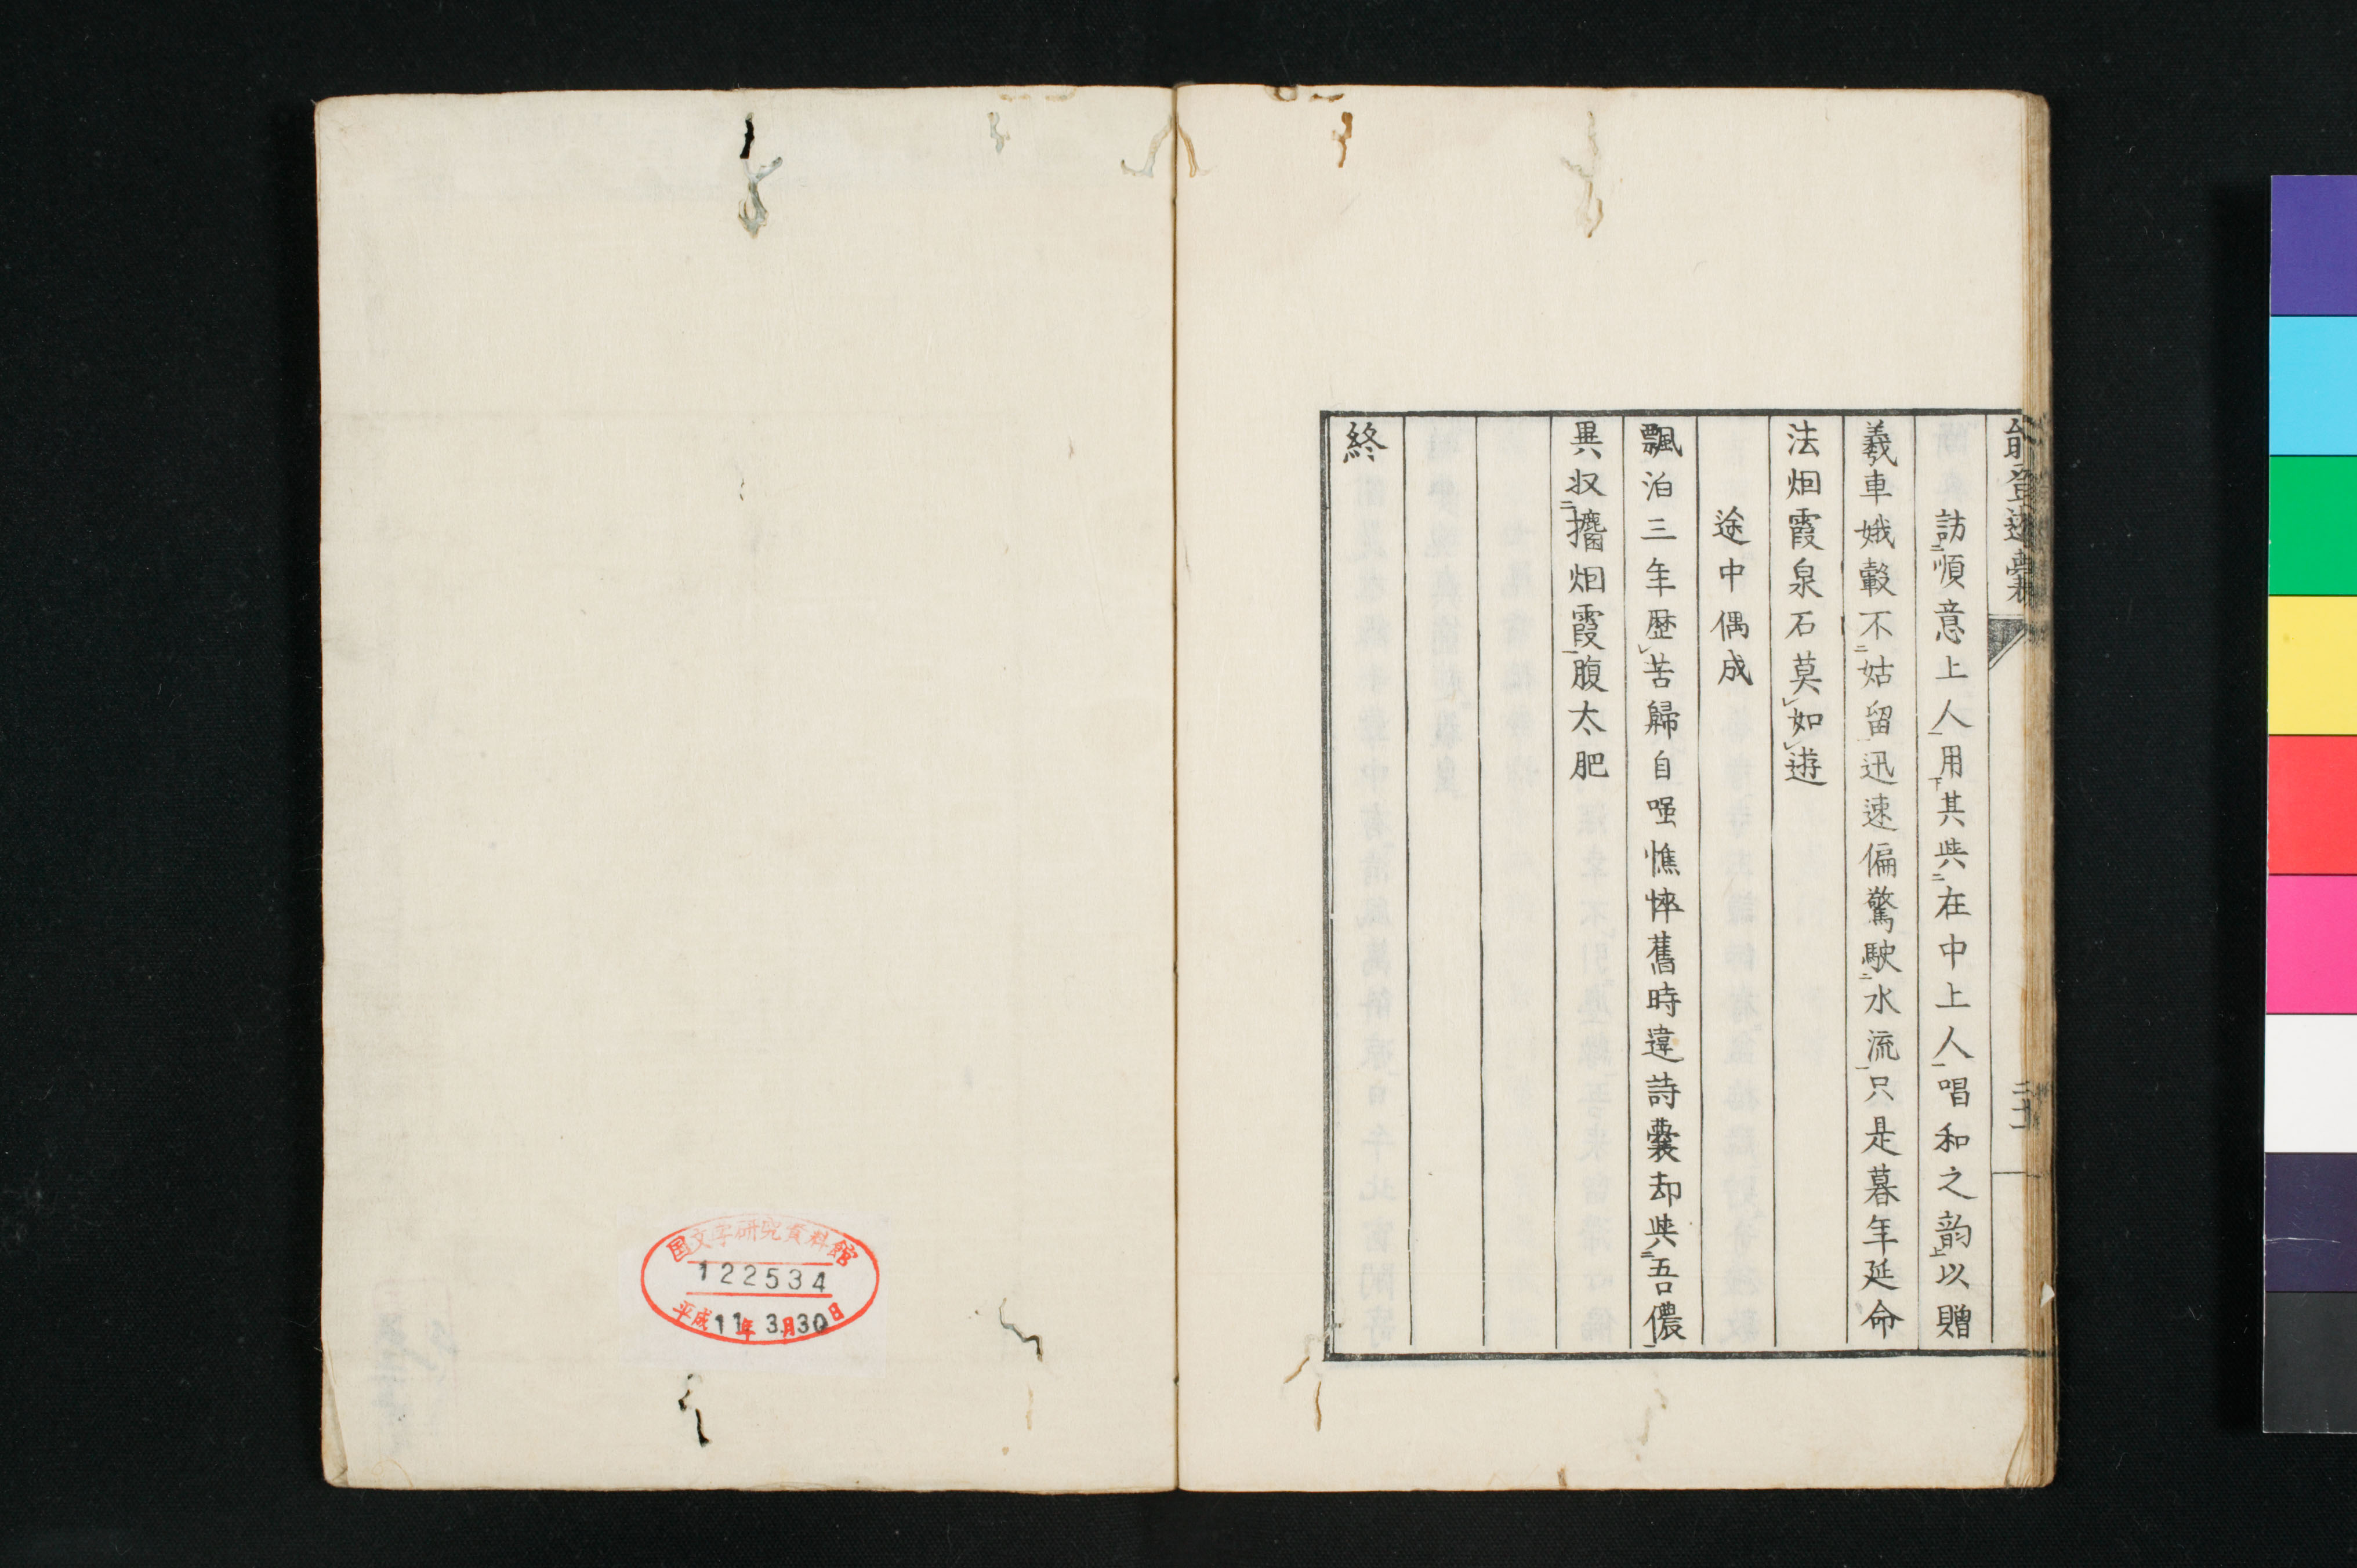 訪順意上人用其與在中上人唱和之韵以贈
羲車娥轂不姑留迅速偏驚駛水流只是暮年延命
法烟霞泉石莫如遊
途中偶成
飄泊三年歴苦歸自嗤憔悴舊時違詩囊却與吾儂
異収攟烟霞腹太肥
終
二十一
国文学研究資料館
122534
平成11年3月30日